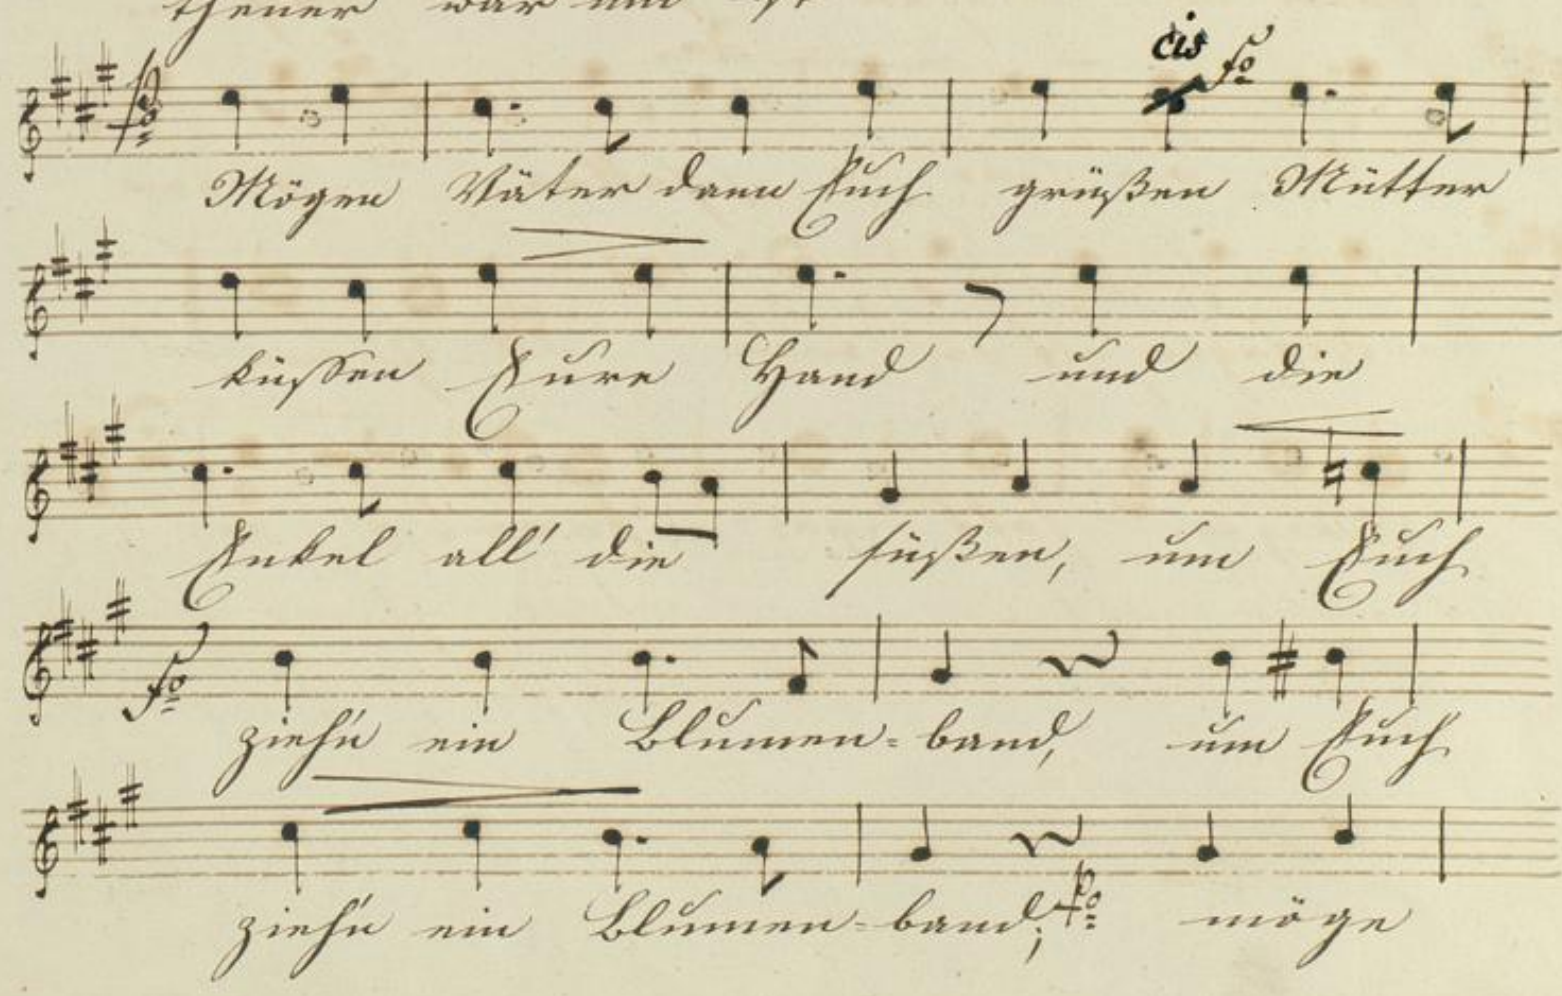 theuer war und ist
cis fo
Mögen Väter dann Euch grüßen Mütter
küssen Eure Hand und die
Enkel all' die süßen, um Euch
fo
ziehn ein Blumen= band, um Euch
ziehn ein Blumen- band; po möge